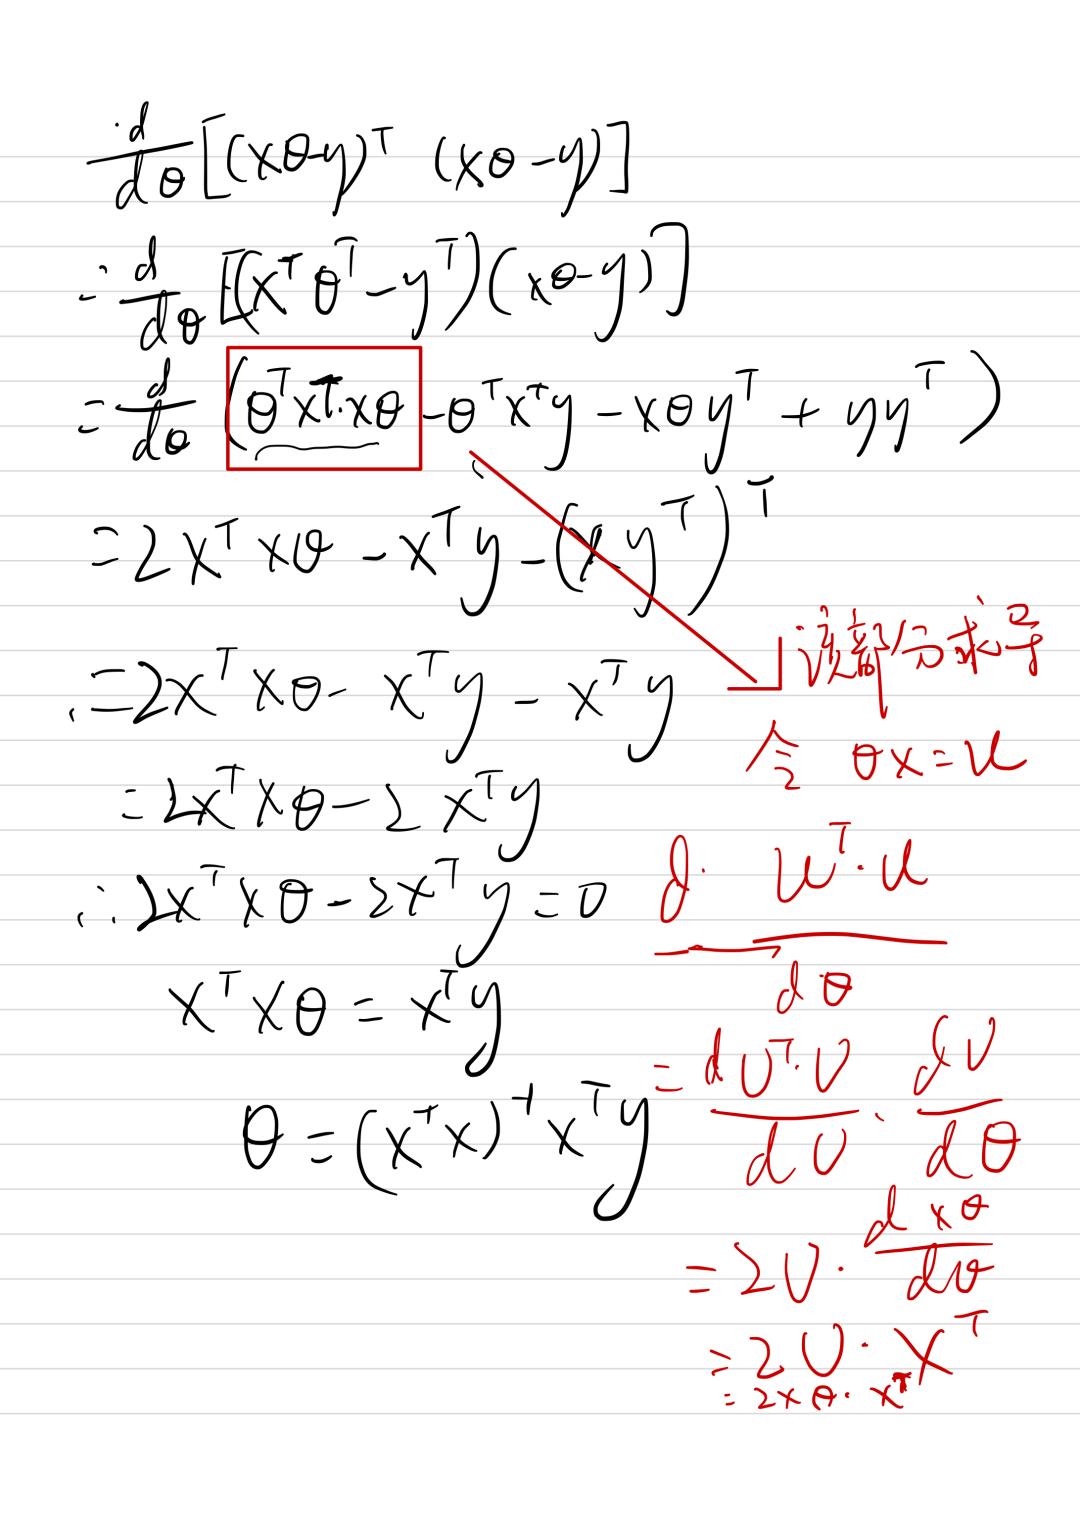 d/dθ [(xθ-y)ᵀ (xθ-y)]
= d/dθ [(xᵀθᵀ-yᵀ)(xθ-y)]
= d/dθ (θᵀxᵀ·xθ - θᵀxᵀy - xθyᵀ + yyᵀ)
= 2xᵀxθ - xᵀy - (xyᵀ)ᵀ
= 2xᵀxθ - xᵀy - xᵀy
= 2xᵀxθ - 2xᵀy
∴ 2xᵀxθ - 2xᵀy = 0
xᵀxθ = xᵀy
θ = (xᵀx)⁻¹xᵀy
该部分求导
令 θx = u
d·uᵀ·u / dθ
= dUᵀ·U/dU · dU/dθ
= 2U · dxθ/dθ
= 2U·Xᵀ
= 2xθ·xᵀ